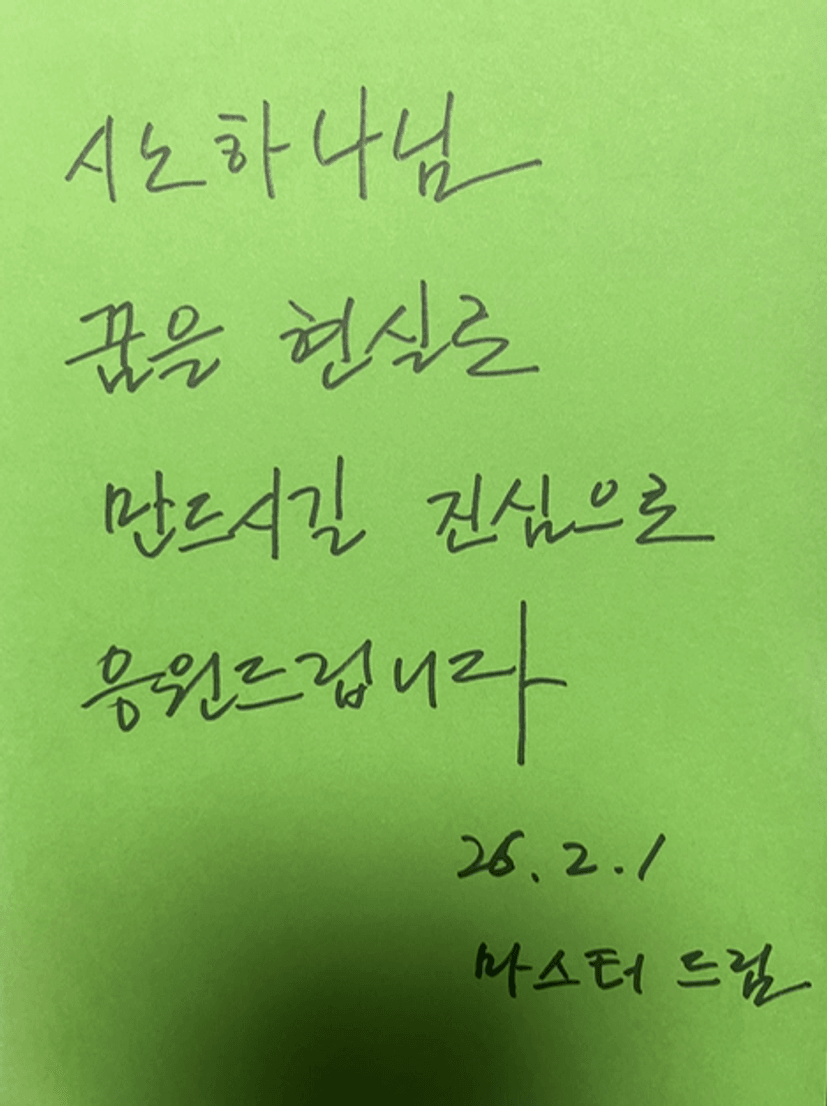 시노하나님
꿈을 현실로
만드시길 진심으로
응원드립니다
26. 2. 1
마스터 드림